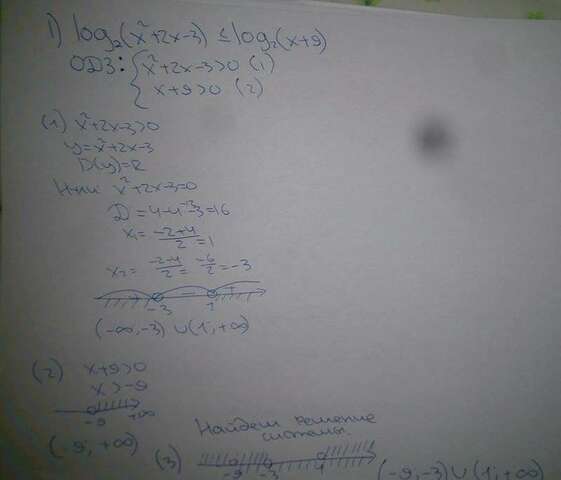 1) log₂(x²+2x-3) ≤ log₂(x+9)
ОДЗ: { x²+2x-3>0 (1)
x+9>0 (2)
(1) x²+2x-3>0
y=x²+2x-3
D(y)=R
Нули: x²+2x-3=0
D=4-4·-3=16
x₁= -2+4/2 =1
x₂= -2+4/2 = -6/2 = -3
+ - +
-3 1
(-∞,-3) ∪ (1; +∞)
(2) x+9>0
x>-9
-9 +∞
(-9; +∞)
Найдем решение
системы.
(3) -9 -3 1
(-9,-3) ∪ (1; +∞)